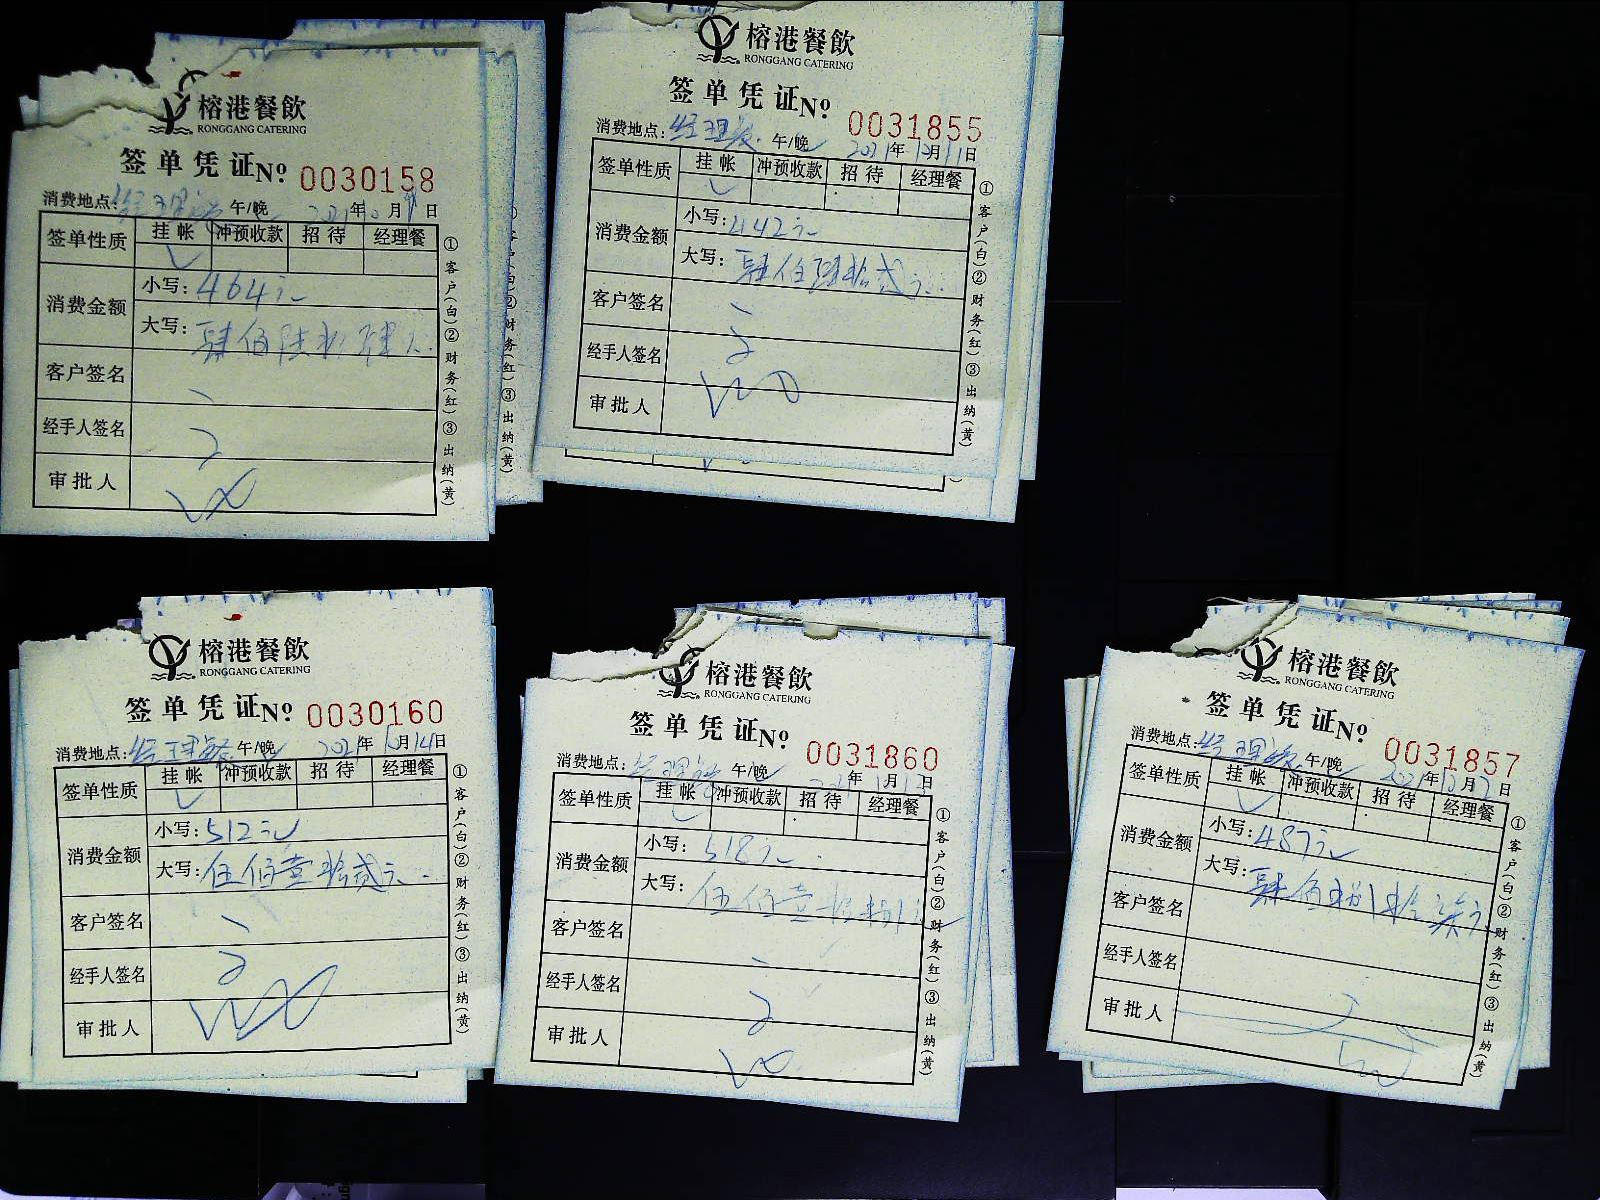 榕港餐飲
RONGGANG CATERING
签单凭证№ 0030158
消费地点: 经理餐 午/晚 2021年10月 日
签单性质 挂帐 冲预收款 招待 经理餐
消费金额 小写: 464元
大写: 肆佰陆拾肆元
客户签名
经手人签名
审批人
①客户(白)②财务(红)③出纳(黄)
榕港餐飲
RONGGANG CATERING
签单凭证№ 0031855
消费地点: 经理餐 午/晚 2021年10月11日
签单性质 挂帐 冲预收款 招待 经理餐
消费金额 小写: 442元
大写: 肆佰肆拾贰元
客户签名
经手人签名
审批人
①客户(白)②财务(红)③出纳(黄)
榕港餐飲
RONGGANG CATERING
签单凭证№ 0030160
消费地点: 经理餐 午/晚 2021年10月14日
签单性质 挂帐 冲预收款 招待 经理餐
消费金额 小写: 512元
大写: 伍佰壹拾贰元
客户签名
经手人签名
审批人
①客户(白)②财务(红)③出纳(黄)
榕港餐飲
RONGGANG CATERING
签单凭证№ 0031860
消费地点: 经理餐 午/晚 2021年 月 日
签单性质 挂帐 冲预收款 招待 经理餐
消费金额 小写: 518元
大写: 伍佰壹拾捌元
客户签名
经手人签名
审批人
①客户(白)②财务(红)③出纳(黄)
榕港餐飲
RONGGANG CATERING
签单凭证№ 0031857
消费地点: 经理餐 午/晚 2021年10月 日
签单性质 挂帐 冲预收款 招待 经理餐
消费金额 小写: 487元
大写: 肆佰捌拾柒元
客户签名
经手人签名
审批人
①客户(白)②财务(红)③出纳(黄)